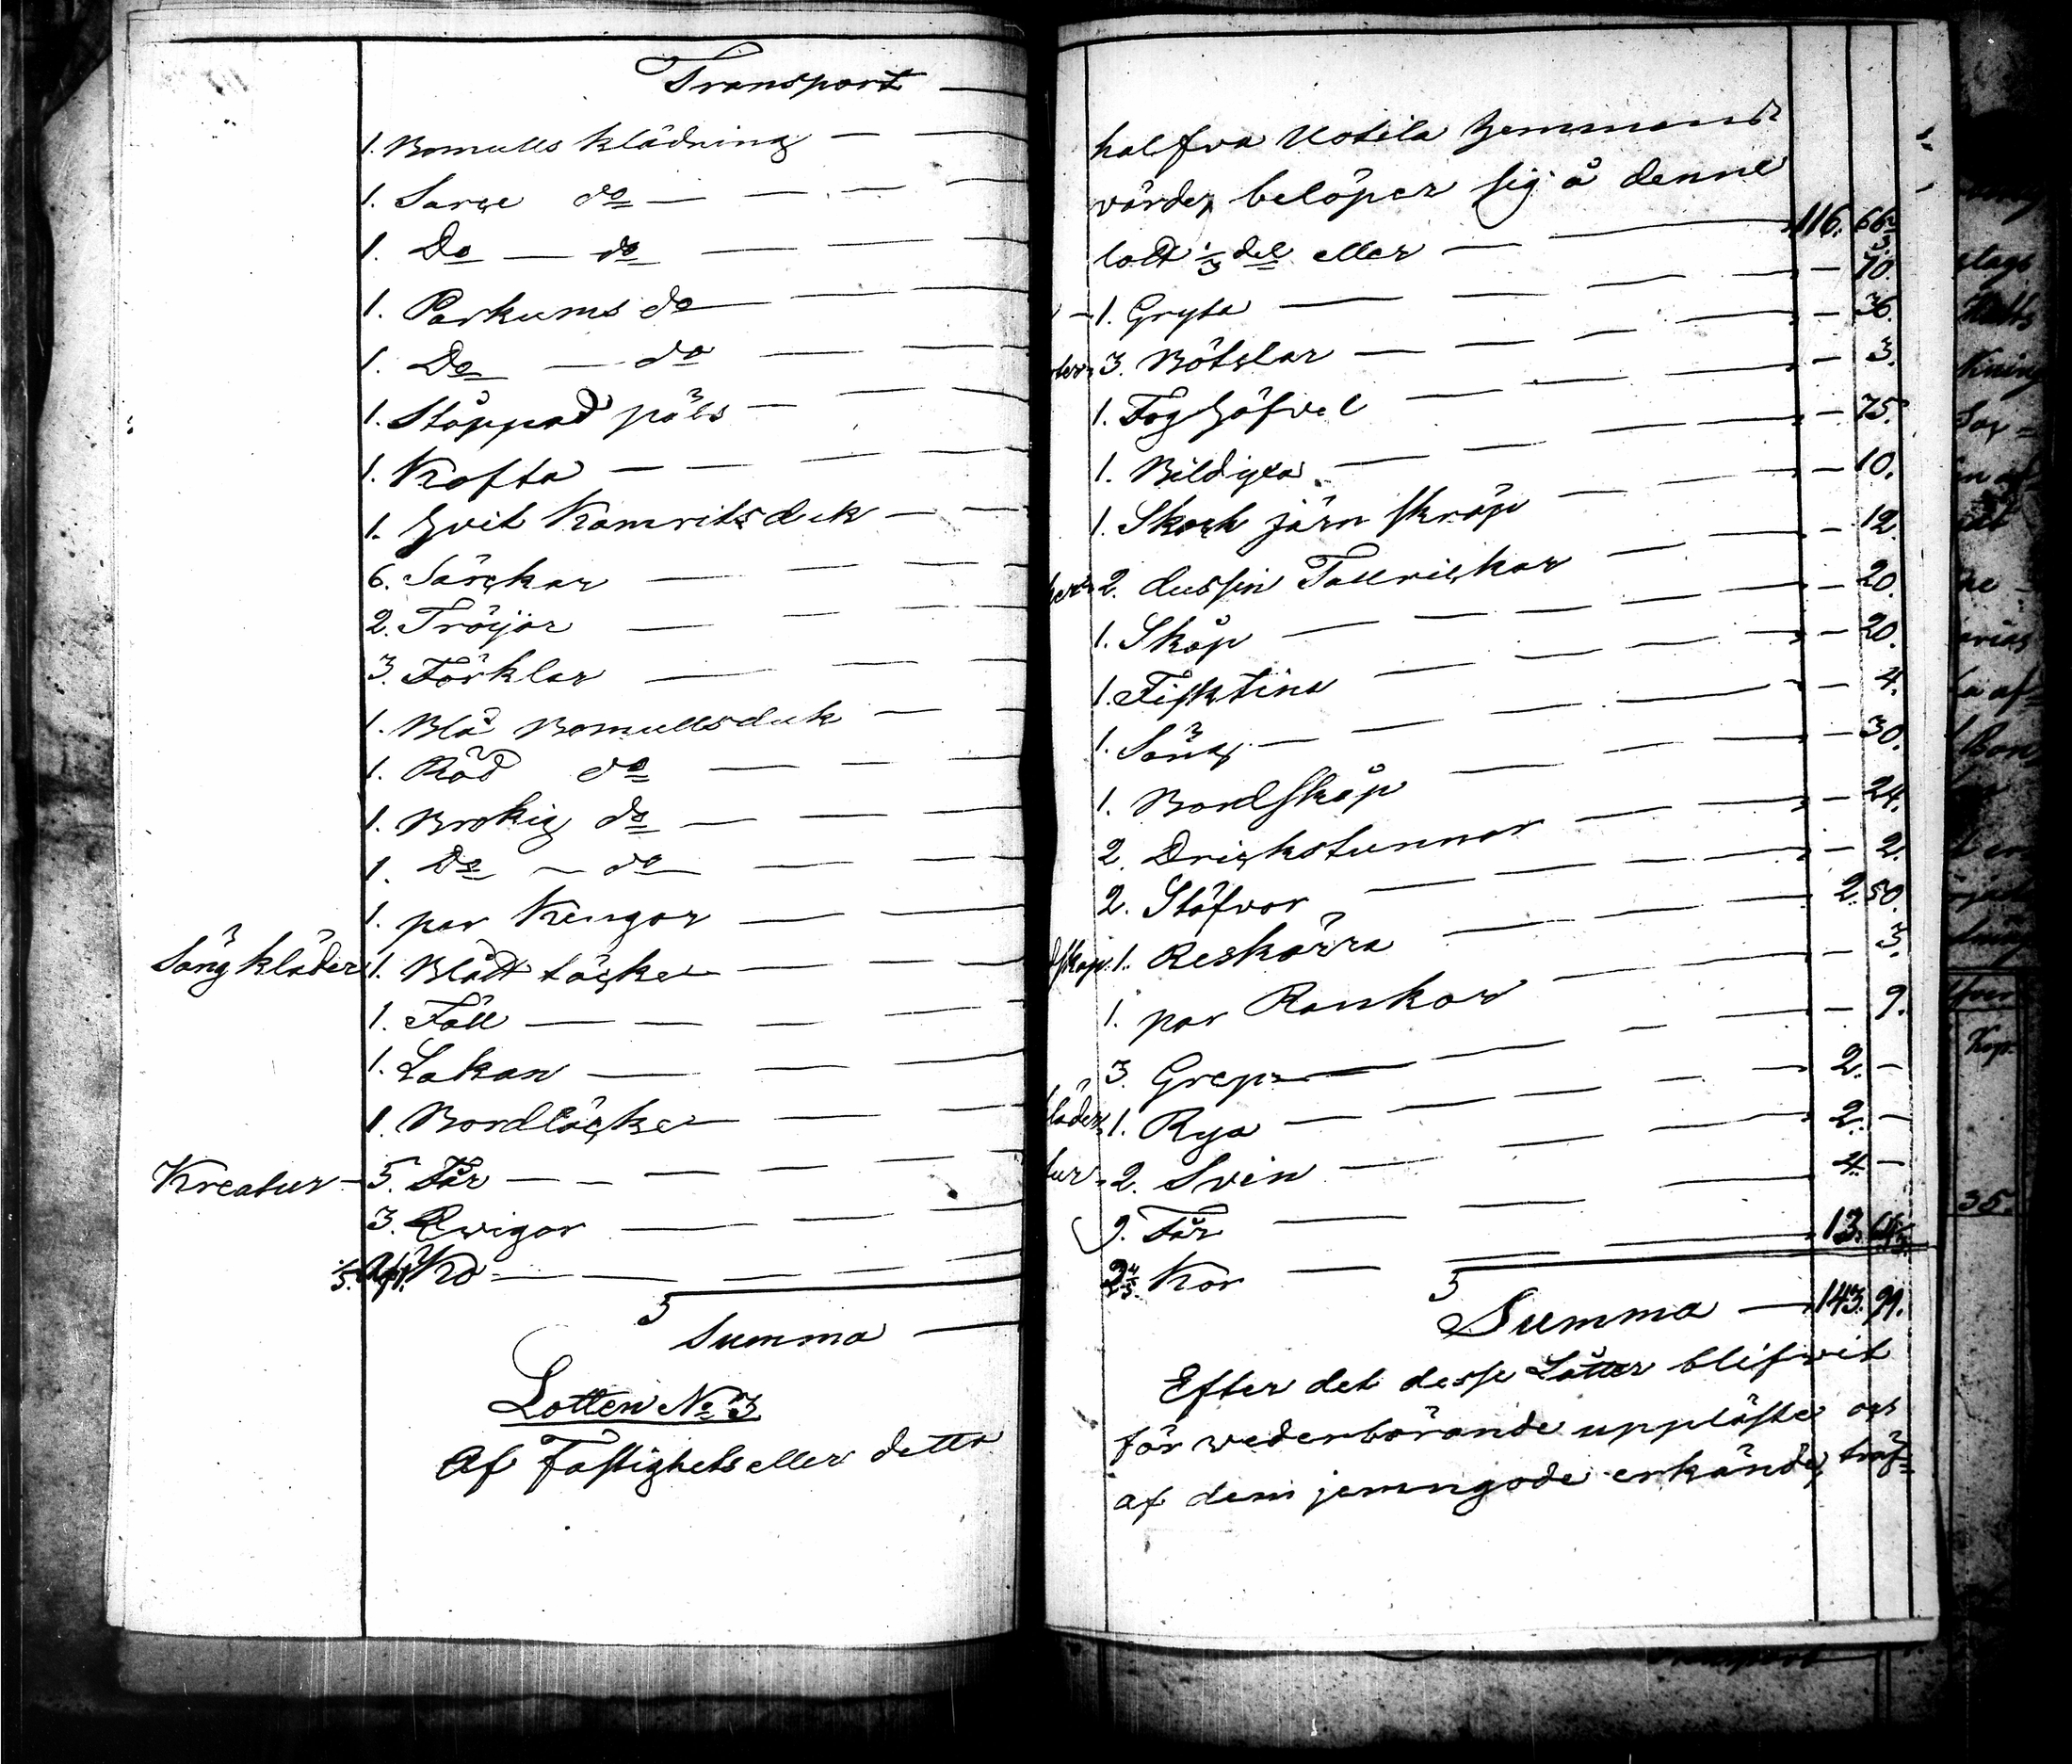 Transport
1. Bomulls klädning
1. Sarge do
1. Do do
1. Parkums do
1. Do do
1. Stoppad päls
1. Kofta
1. Hvit Kamritsduk
6. Särckar
2. Tröijor
3. Förklar
1. Blå Bomullsduk
1. Röd do
1. Brokig do
1. Do do
1. par Kengor
Sängkläder 1. Blått täcke
1. Fäll
1. Lakan
1. Bordtäcke
Kreatur 5. Får
3. Qvigor
Ko
Summa
Lotten No 3
Af Fastighets eller detta
halfva Uotila Hemmans
värde, belöper sig å denne
lott 1/3 del eller 116. 66 2/3
1. Gryta 70.
3. Böttlar 36.
1. Foghöfvel 3.
1. Bildyxa 75.
1. Skock järn skräp 10.
2. dussin Tallrickar 12.
1. Skåp 20.
1. Fisktina 20.
1. Säng 4.
1. Bordskåp 30.
2. Drickstunnor 24.
2. Stäfvor 2.
1. Reskärra 2. 50.
1. par Rankor 3.
3. Grepar 9.
1. Rya 2. -
2. Svin 2. -
9. Får 4. -
2 4/5. Kor 13.
Summa 143. 91.
Efter det desse Lotter blifvit
för wederbörande uppläste och
af dem jemngode erkände, träf=